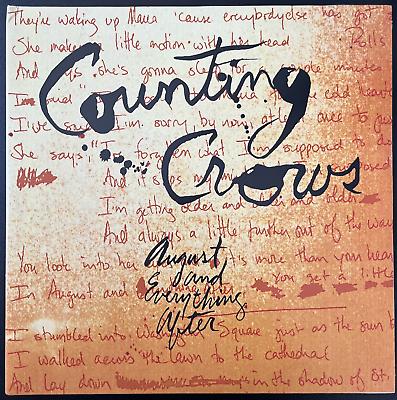 They're waking up Maria 'cause everybody else has got
She makes a little motion with her head
Rolls
And says she's gonna sleep for a couple minutes
Counting
I've said, "I'm sorry" by now, at least once to just
She says, "I've forgotten what I'm supposed to do
And it slips my
Crows
I'm getting older and older and older
And always a little further out of the way
You look into her
it's more than your heart
August
& and
In August and
You get a little
Everything
After
I stumbled into Washington Square just as the sun b
I walked across the lawn to the cathedral
And lay down
in the shadow of St.